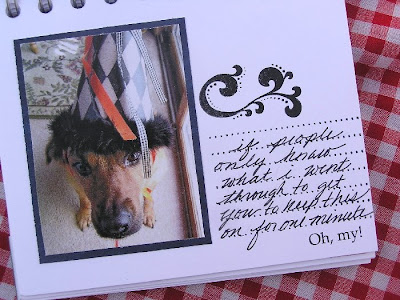 if people
only knew
what i went
through to get
you to keep this
on for one minute
Oh, my!